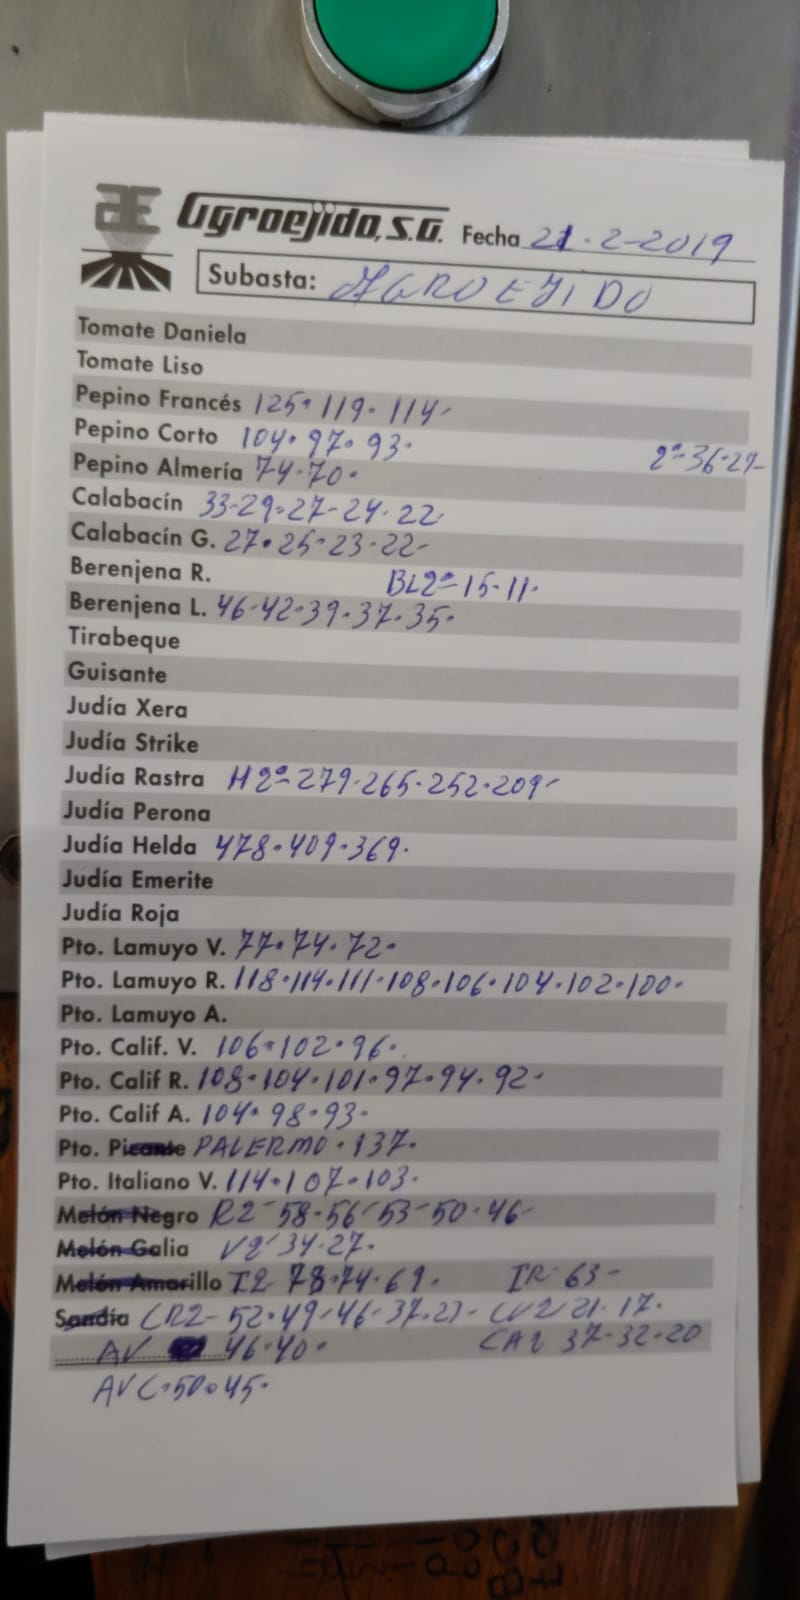 Agroejido, S.A. Fecha 21-2-2019
Subasta: AGROEJIDO
Tomate Daniela
Tomate Liso
Pepino Francés 125-119-114-
Pepino Corto 104-97-93-
2ª-36-27-
Pepino Almería 74-70-
Calabacín 33-29-27-24-22
Calabacín G. 27-25-23-22-
Berenjena R. BL2ª-15-11-
Berenjena L. 46-42-39-37-35-
Tirabeque
Guisante
Judía Xera
Judía Strike
Judía Rastra H2ª-279-265-252-209-
Judía Perona
Judía Helda 478-409-369-
Judía Emerite
Judía Roja
Pto. Lamuyo V. 77-74-72-
Pto. Lamuyo R. 118-114-111-108-106-104-102-100-
Pto. Lamuyo A.
Pto. Calif. V. 106-102-96-
Pto. Calif R. 108-104-101-97-94-92-
Pto. Calif A. 104-98-93-
Pto. Picante PALERMO-137-
Pto. Italiano V. 114-107-103-
Melón Negro R2-58-56-53-50-46-
Melón Galia V2-34-27-
Melón Amarillo I2 78-74-69- IR-63-
Sandía CR2-52-49-46-37-27- CV2 21-17-
AV 46-40- CA2 37-32-20
AVC-50-45-